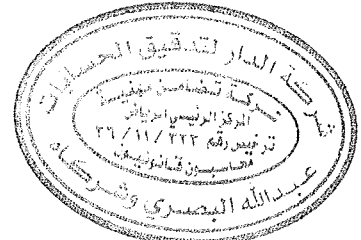 شركة الدار لتدقيق الحسابات
شركة تضامن مهنية
المركز الرئيسي الرياض
ترخيص رقم ٣٦/١١/٢٢٣
محاسبون قانونيون
عبدالله البصري وشركاه